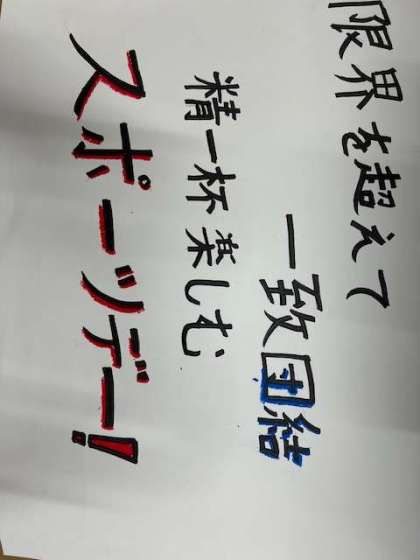 限界を超えて
一致団結
精一杯楽しむ
スポーツデー!